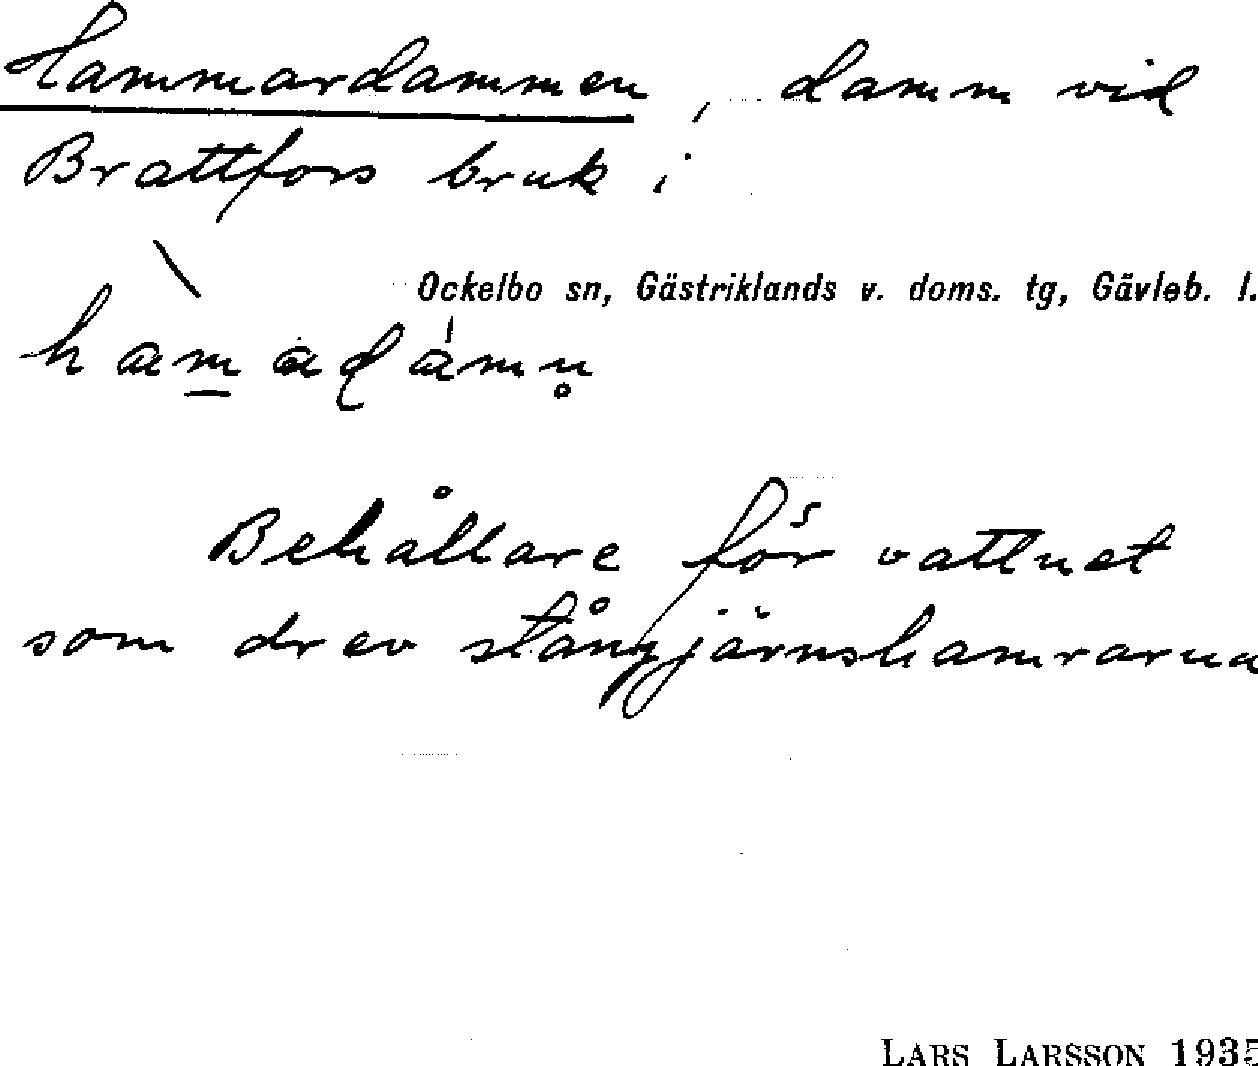 Hammardammen, damm vid
Brattfors bruk i
Ockelbo sn, Gästriklands v. doms. tg, Gävleb. l.
hàm̲adámn̥
Behållare för vattnet
som drev stångjärnshamrarna
LARS LARSSON 1935